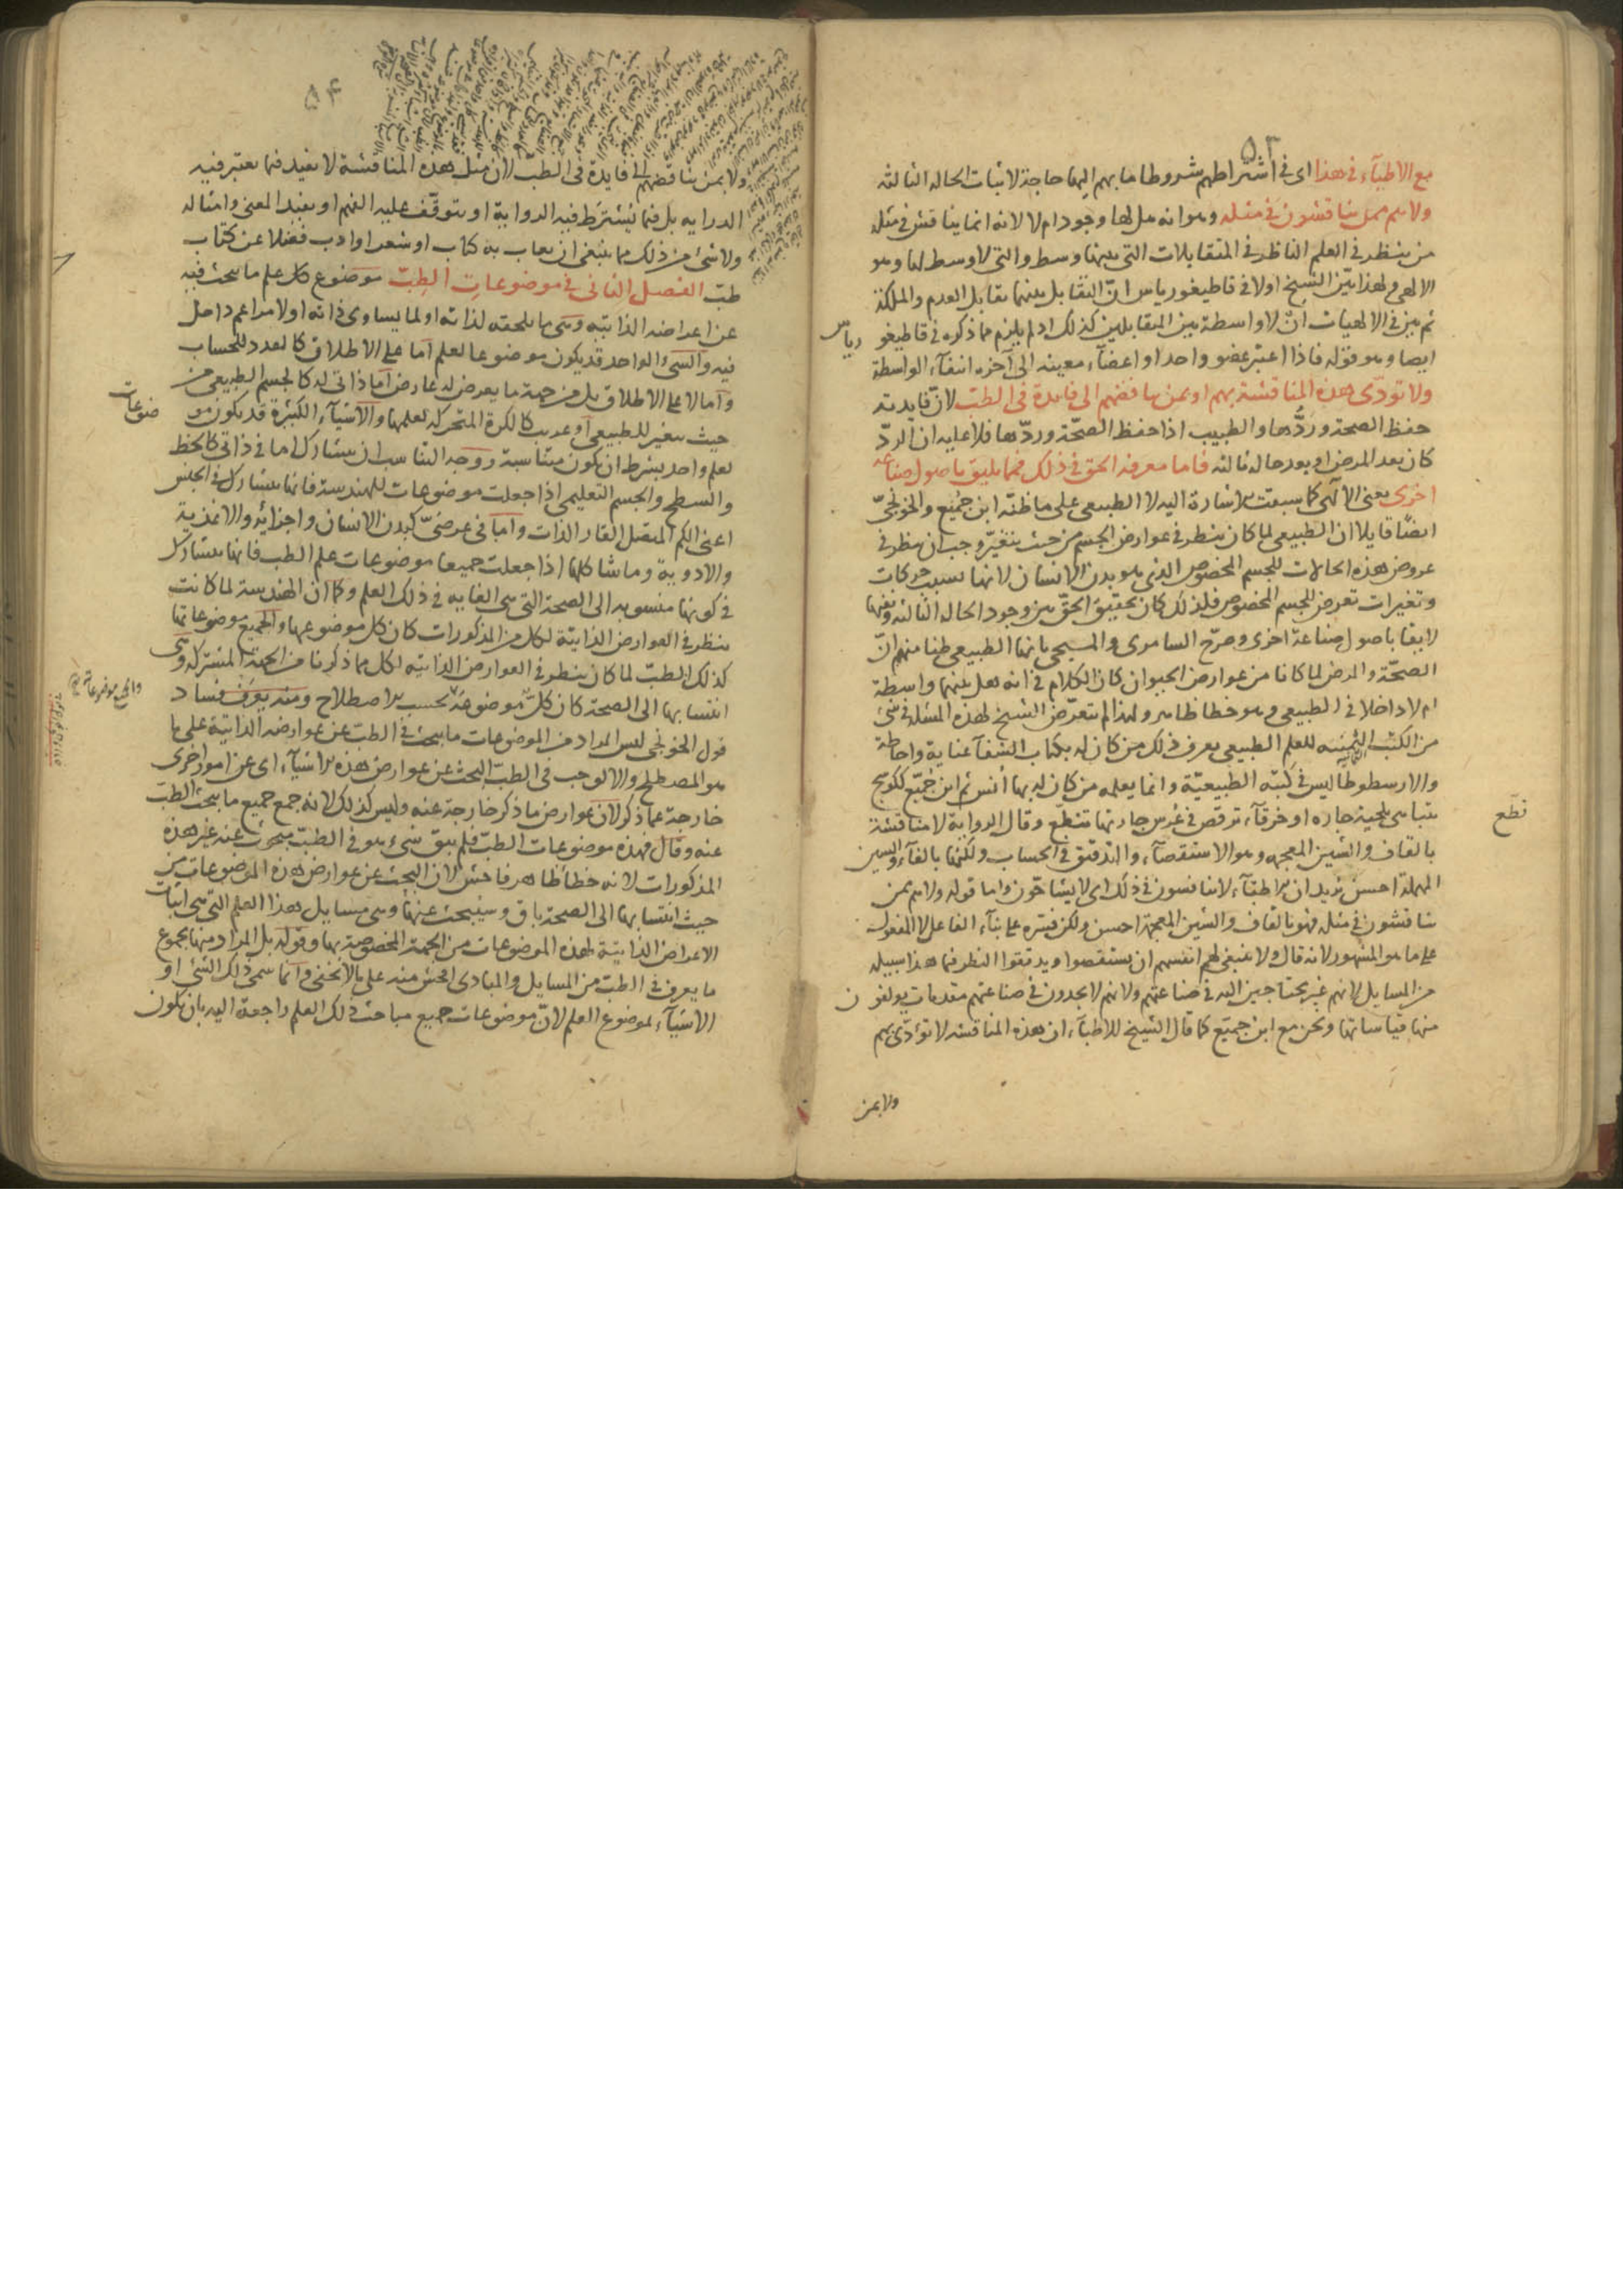 ٥٣
مع الاطبآء فى هذا اى فى اشتراطهم شروطا ما بهم اليها حاجة لاثبات الحاله الثالثه
ولا هم ممن يناقشون فى مثله وهو انه هل لها وجود ام لا لانه انما يناقش فى مثله
من ينظر فى العلم الناظر فى المتقابلات التى بينها وسط والتى لا وسط لها وهو
الالهى ولهذا بيّن الشيخ اولا فى قاطيغورياس انّ التقابل بينهما تقابل العدم والملكة
ثم بين فى الالهيات ان لا واسطة بين المتقابلين كذلك اذ لم يلزم مما ذكره فى قاطيغو
رياس
ايضا وهو قوله فاذا اعتبر عضو واحد او اعضآء معينه الى آخره انتفآء الواسطة
ولا تودّى هذه المناقشة بهم او بمن يناقضهم الى فايدة فى الطبّ لانّ فايدته
حفظ الصحة وردُّها والطبيب اذا حفظ الصحّة وردّها فلا عليه ان الردّ
كان بعد المرض او بعد حالة ثالثه فاما معرفة الحق فى ذلك فمما يليق باصول صناعه
اخرى يعنى الالهى كما سبقت الاشارة اليه لا الطبيعى على ما ظنّه ابن جُمَيع والخونجىّ
ايضًا قايلا ان الطبيعى لما كان ينظر فى عوارض الجسم من حيث يتغيّر وجب ان ينظر فى
عروض هذه الحالات للجسم المخصوص الذى هو بدن الانسان لانها بسبب حركات
وتغيرات تعرض للجسم المخصوص فلذلك كان تحقيق الحقّ من وجود الحاله الثالثه ونفيها
لايقا باصول صناعة اخرى وصرّح السامرى والمسيحى بانها الطبيعى ظنا منهم انّ
الصحّة والمرض لما كانا من عوارض الحيوان كان الكلام فى انه هل بينهما واسطة
ام لا داخلا فى الطبيعى وهو خطا ظاهر ولهذا لم يتعرّض الشيخ لهذه المسئله فى شئ
من الكتب الثمنيه للعلم الطبيعى يعرف ذلك من كان له بكتاب الشفآ عناية واحاطة
والارسطوطاليس فى كتبه الطبيعيّة وانما يعلمه من كان له بها اُنس ثم ابن جُمَيّع ككوسج
يتباهى بلحية جاره او خرقآء ترقص فى عُرس جارتها تنطّع وقال الرواية لا مناقشة
نطّع
بالقاف والشين المعجمه وهو الاستقصآء والتدقيق فى الحساب ولكنها بالفآء والسين
المهملة احسن يريد ان الاطبآء لا يتنافسون فى ذلك اى لا يشاحّون واما قوله ولا هم ممن
يناقشون فى مثله فهو بالقاف والشين المعجمة احسن ولكن فسّره على بنآء الفاعل لا المفعول
على ما هو المشهور لانه قال ولا ينبغى لهم انفسهم ان يستقصوا ويدققوا النظر فيما هذا سبيله
من المسايل لانهم غير محتاجين اليه فى صناعتهم ولانهم لا يجدون فى صناعتهم مقدمات يولفون
منها قياساتها ونحن مع ابن جميَع كما قال الشيخ للاطبآء ان هذه المناقشه لا تؤدّى بهم
ولا بمن
٥٤
ولا بمن يناقضهم الى فايدة فى الطب لان مثل هذه المناقشة لا تفيد فيما يعتبر فيه
الدرايه بل فيما يُشترَط فيه الرواية او يتوقّف عليه الفهم او يفيد المعنى وامثاله
ولا شئ من ذلك مما ينبغى ان يعاب به كتاب او شعر او ادب فضلا عن كتاب
طبّ الفصل الثانى فى موضوعاتِ الطِبّ موضوع كل علم ما يبحث فيه
عن اعراضه الذاتيه وهى ما يلحقه لذاته او لما يساوى ذاته او لامر اعم داخل
فيه والشئ الواحد قد يكون موضوعا لعلم اما على الاطلاق كالعدد للحساب
واما لا على الاطلاق بل من جهة ما يعرض له عارض اما ذاتى له كالجسم الطبيعى من
حيث يتغير للطبيعى او غريب كالكرة المتحركه لعلمها والاشيآء الكثيرة قد يكون مو
ضوعات
لعلم واحد بشرط ان يكون متناسبة ووجه التناسب ان يتشارك اما فى ذاتى كالخط
والسطح والجسم التعليمى اذا جعلت موضوعات للهندسة فانها يتشارك فى الجنس
اعنى الكم المتصل القار الذات واما فى عرضىّ كبدن الانسان واجزائه والاغذية
والادوية وما شاكلها اذا جعلت جميعا موضوعات علم الطب فانها يتشارك
فى كونها منسوبه الى الصحة التى هى الغايه فى ذلك العلم وكما ان الهندسة لما كانت
ينظر فى العوارض الذاتيّة لكل من المذكورات كان كل موضوعها والجميع موضوعاتها
كذلك الطبّ لما كان ينظر فى العوارض الذاتيه لكل مما ذكرنا من الجهة المشتركه وهى
انتسابها الى الصحة كان كلّ موضوعَهُ بحسب الاصطلاح ومنه يعرف فساد
والجميع موضوعاته
قول الخونجى ليس المراد من الموضوعات ما يبحث فى الطب عن عوارضه الذاتية على ما
هو المصطلح والا لوجب فى الطبّ البحث عن عوارض هذه الاشيآء اى عن امور اخرى
خارجة عما ذكر لان عوارض ما ذكر خارجة عنه وليس كذلك لانه جمع جميع ما يبحث الطب
عنه وقال فهذه موضوعات الطبّ فلم يبق شئ هو فى الطبّ مبحوث عنه غير هذه
المذكورات لانه خطأ ظاهر فاحش لان البحث عن عوارض هذه الموضوعات من
حيث انتسابها الى الصحة باق وسيُبحث عنها وهى مسايل هذا العلم التى هى اثبات
الاعراض الذاتية لهذه الموضوعات من الجهة المخصوصة بها وقوله بل المراد منها مجموع
ما يعرف فى الطبّ من المسايل والمبادى افحش منه على ما لا يخفى وانما سمى ذلك الشئ او
الاشيآء لموضوع العلم لانّ موضوعات جميع مباحث ذلك العلم راجعة اليه بان يكون